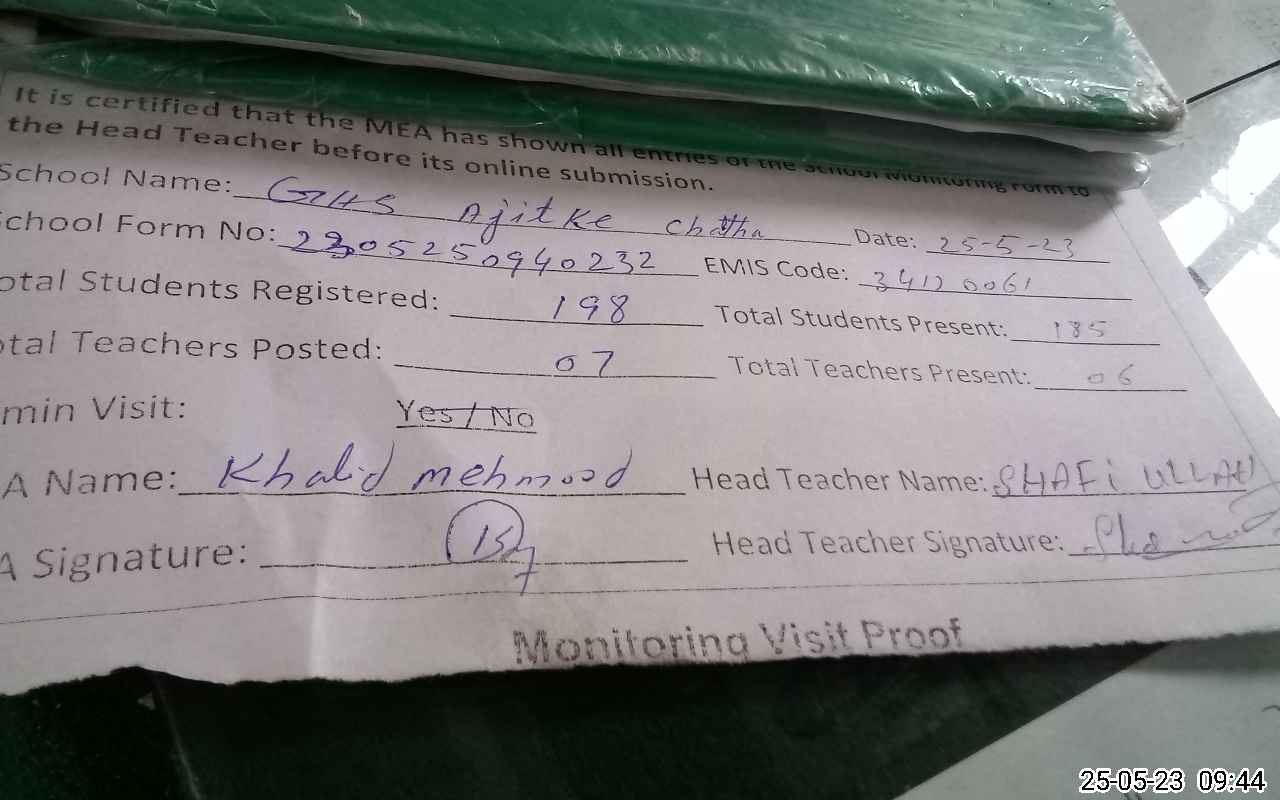 It is certified that the MEA has shown all entries of the School Monitoring Form to
the Head Teacher before its online submission.
School Name: GHS Ajitke Chatha Date: 25-5-23
chool Form No: 2305250940232 EMIS Code: 34120061
otal Students Registered: 198 Total Students Present: 185
otal Teachers Posted: 07 Total Teachers Present: 06
min Visit: Yes / No
A Name: Khalid mehmood Head Teacher Name: SHAFi ULLAH
A Signature: Head Teacher Signature:
Monitoring Visit Proof
25-05-23 09:44